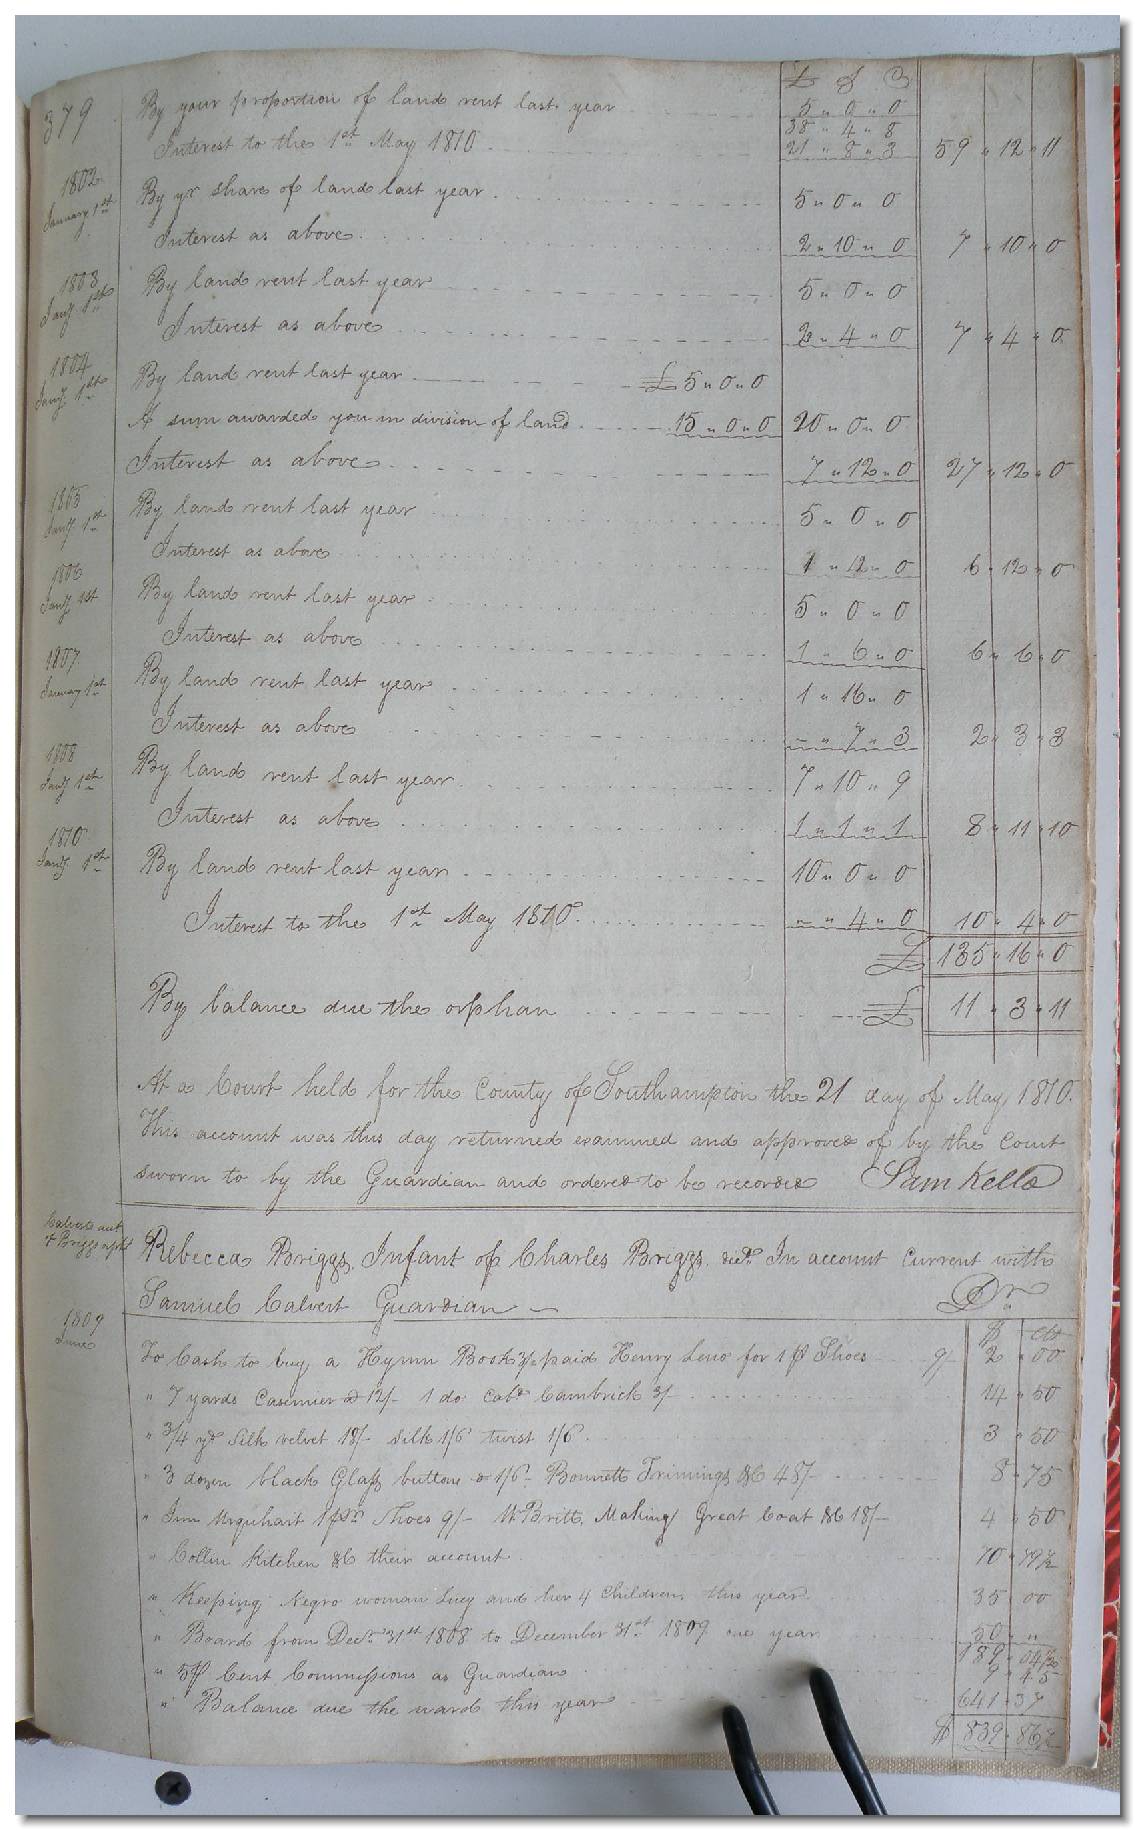 379
£ S D
By your proportion of land rent last year 5 " 0 " 0
38 " 4 " 8
Interest to the 1st May 1810 21 " 8 " 3 59 " 12 " 11
1802
January 1st
By yr share of land last year 5 " 0 " 0
Interest as above 2 " 10 " 0 7 " 10 " 0
1803
Jany 1st
By land rent last year 5 " 0 " 0
Interest as above 2 " 4 " 0 7 " 4 " 0
1804
Jany 1st
By land rent last year £5 " 0 " 0
A sum awarded you in division of land 15 " 0 " 0 20 " 0 " 0
Interest as above 7 " 12 " 0 27 " 12 " 0
1805
Jany 1st
By land rent last year 5 " 0 " 0
Interest as above 1 " 12 " 0 6 " 12 " 0
1806
Jany 1st
By land rent last year 5 " 0 " 0
Interest as above 1 " 6 " 0 6 " 6 " 0
1807
January 1st
By land rent last year 1 " 16 " 0
Interest as above " " 7 " 3 2 " 3 " 3
1808
Jany 1st
By land rent last year 7 " 10 " 9
Interest as above 1 " 1 " 1 8 " 11 " 10
1810
Jany 1st
By land rent last year 10 " 0 " 0
Interest to the 1st May 1810 " " 4 " 0 10 " 4 " 0
£ 135 " 16 " 0
By balance due the orphan £ 11 " 3 " 11
At a Court held for the County of Southampton the 21 day of May 1810.
This account was this day returned examined and approved of by the Court
sworn to by the Guardian and ordered to be recorded Sam Kello
Calverts acct
of Briggs orpht
Rebecca Briggs, Infant of Charles Briggs decd. In account Current with
Samuel Calvert Guardian Dr
1809
June
$ Cts
To Cash to buy a Hymn Book 3/ paid Henry Leno for 1 pr Shoes 9/ 2 " 00
" 7 yards Casimier @ 12/- 1 do Cabd Cambrick 3/ 14 " 50
" 3/4 yd Silk velvet 18/- silk 1/6 twist 1/6 3 " 50
" 3 dozen black Glass buttons @ 1/6- Bonnett Trimings &C 48/- 8 " 75
" Jno Urquhart 1 pr Shoes 9/- W Britt, Making Great Coat &C 18/- 4 " 50
" Collin Kitchen &C their account 70 " 79½
" Keeping Negro woman Lucy and her 4 Children this year 35 " 00
" Board from Decr 31st 1808 to December 31st 1809 one year 50 " "
189 " 04½
" 5 pr Cent Commissions as Guardian 9 " 45
" Balance due the ward this year 641 " 37
$ 839 " 86½